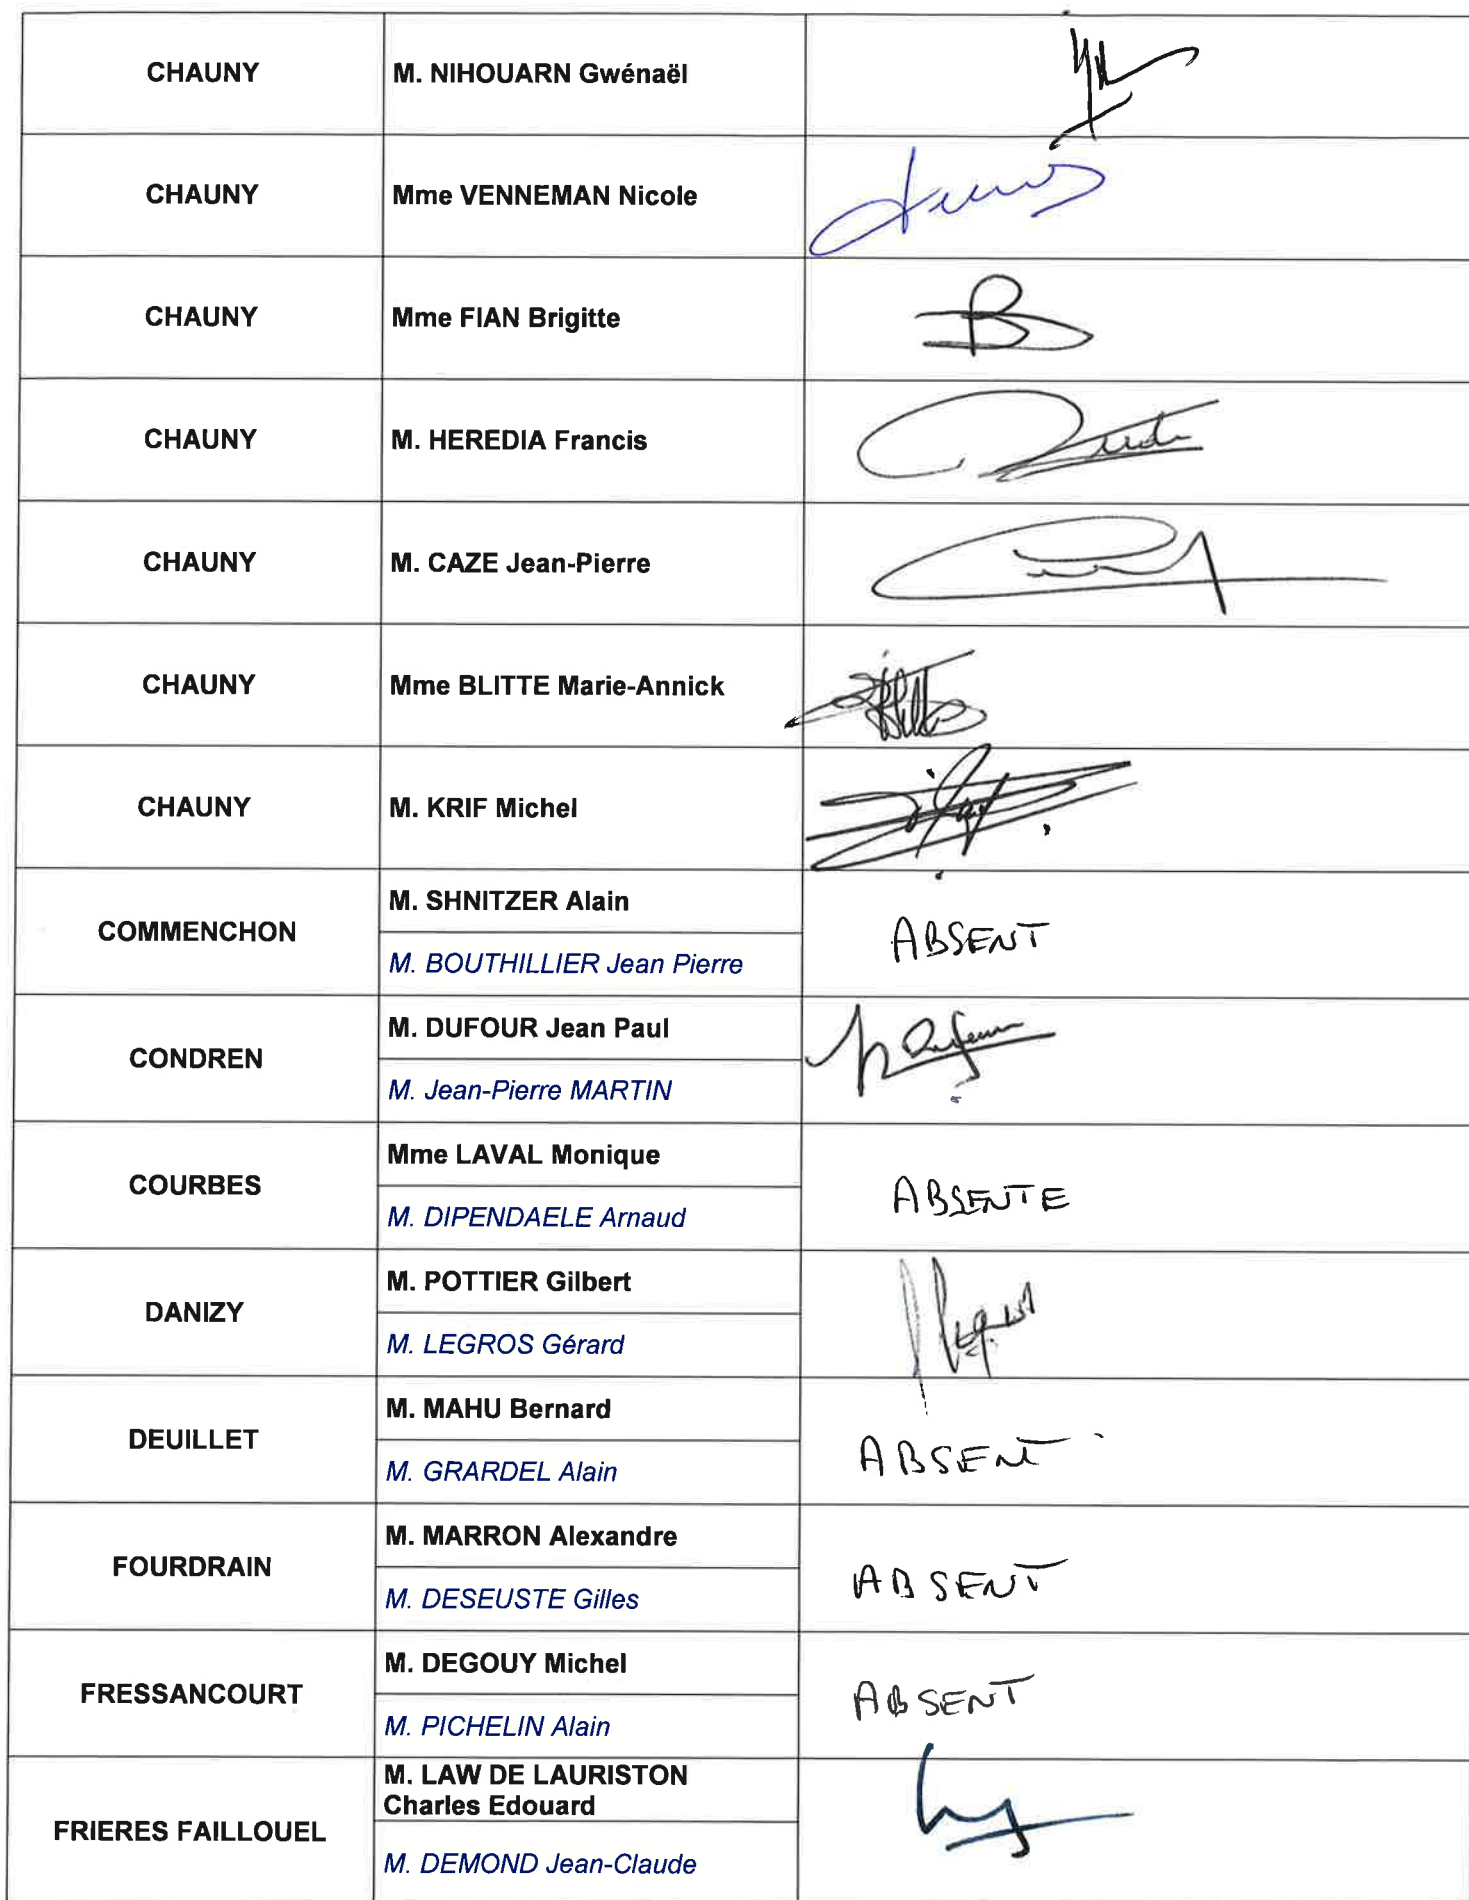 CHAUNY
M. NIHOUARN Gwénaël
CHAUNY
Mme VENNEMAN Nicole
CHAUNY
Mme FIAN Brigitte
CHAUNY
M. HEREDIA Francis
CHAUNY
M. CAZE Jean-Pierre
CHAUNY
Mme BLITTE Marie-Annick
CHAUNY
M. KRIF Michel
COMMENCHON
M. SHNITZER Alain
M. BOUTHILLIER Jean Pierre
ABSENT
CONDREN
M. DUFOUR Jean Paul
M. Jean-Pierre MARTIN
COURBES
Mme LAVAL Monique
M. DIPENDAELE Arnaud
ABSENTE
DANIZY
M. POTTIER Gilbert
M. LEGROS Gérard
DEUILLET
M. MAHU Bernard
M. GRARDEL Alain
ABSENT
FOURDRAIN
M. MARRON Alexandre
M. DESEUSTE Gilles
ABSENT
FRESSANCOURT
M. DEGOUY Michel
M. PICHELIN Alain
ABSENT
FRIERES FAILLOUEL
M. LAW DE LAURISTON
Charles Edouard
M. DEMOND Jean-Claude